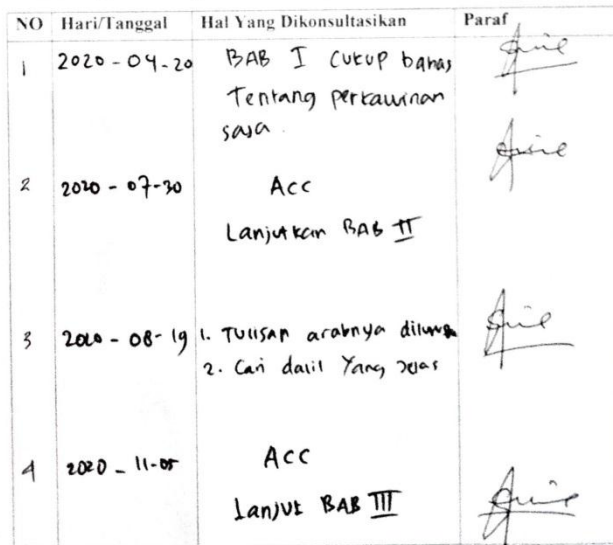 NO Hari/Tanggal Hal Yang Dikonsultasikan Paraf
1 2020-04-20 BAB I Cukup bahas
Tentang perkawinan
saja.
2 2020-07-30 Acc
Lanjutkan BAB II
3 2020-08-19 1. Tulisan arabnya
2. Cari dalil Yang Jelas
4 2020-11-05 Acc
Lanjut BAB III